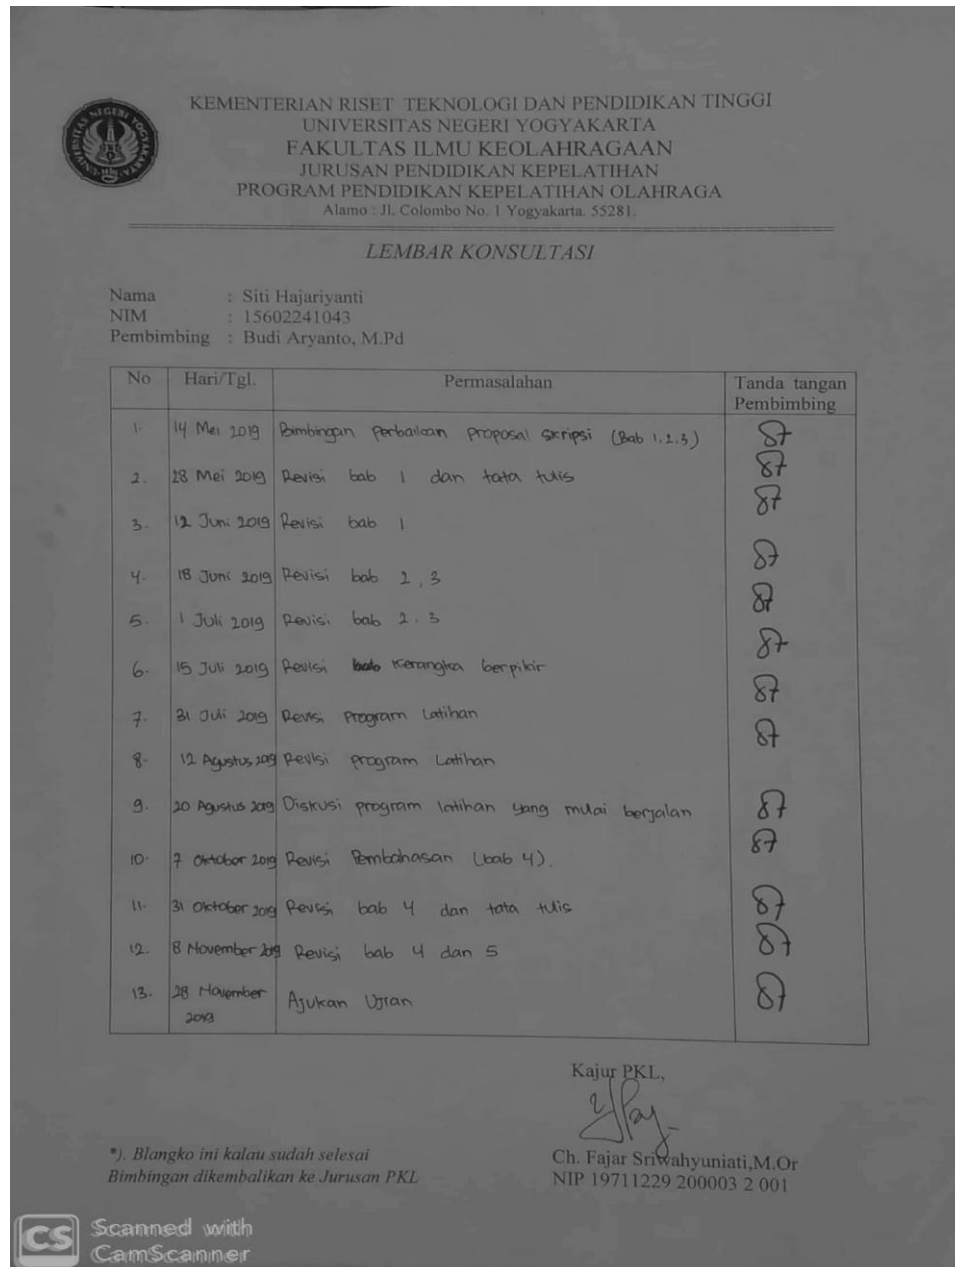 UNIVERSITAS NEGERI YOGYAKARTA
KEMENTERIAN RISET TEKNOLOGI DAN PENDIDIKAN TINGGI
UNIVERSITAS NEGERI YOGYAKARTA
FAKULTAS ILMU KEOLAHRAGAAN
JURUSAN PENDIDIKAN KEPELATIHAN
PROGRAM PENDIDIKAN KEPELATIHAN OLAHRAGA
Alamo : Jl. Colombo No. 1 Yogyakarta. 55281.
LEMBAR KONSULTASI
Nama : Siti Hajariyanti
NIM : 15602241043
Pembimbing : Budi Aryanto, M.Pd
No Hari/Tgl. Permasalahan Tanda tangan
Pembimbing
1. 14 Mei 2019 Bimbingan perbaikan proposal skripsi (Bab 1.2.3)
2. 28 Mei 2019 Revisi bab 1 dan tata tulis
3. 12 Juni 2019 Revisi bab 1
4. 18 Juni 2019 Revisi bab 2,3
5. 1 Juli 2019 Revisi bab 2.3
6. 15 Juli 2019 Revisi Kerangka berpikir
7. 31 Juli 2019 Revisi Program Latihan
8. 12 Agustus 2019 Revisi program Latihan
9. 20 Agustus 2019 Diskusi program latihan yang mulai berjalan
10. 7 Oktober 2019 Revisi Pembahasan (bab 4).
11. 31 Oktober 2019 Revisi bab 4 dan tata tulis
12. 8 November 2019 Revisi bab 4 dan 5
13. 28 November Ajukan Ujian
2019
Kajur PKL,
*). Blangko ini kalau sudah selesai
Bimbingan dikembalikan ke Jurusan PKL
Ch. Fajar Sriwahyuniati,M.Or
NIP 19711229 200003 2 001
CS Scanned with
CamScanner